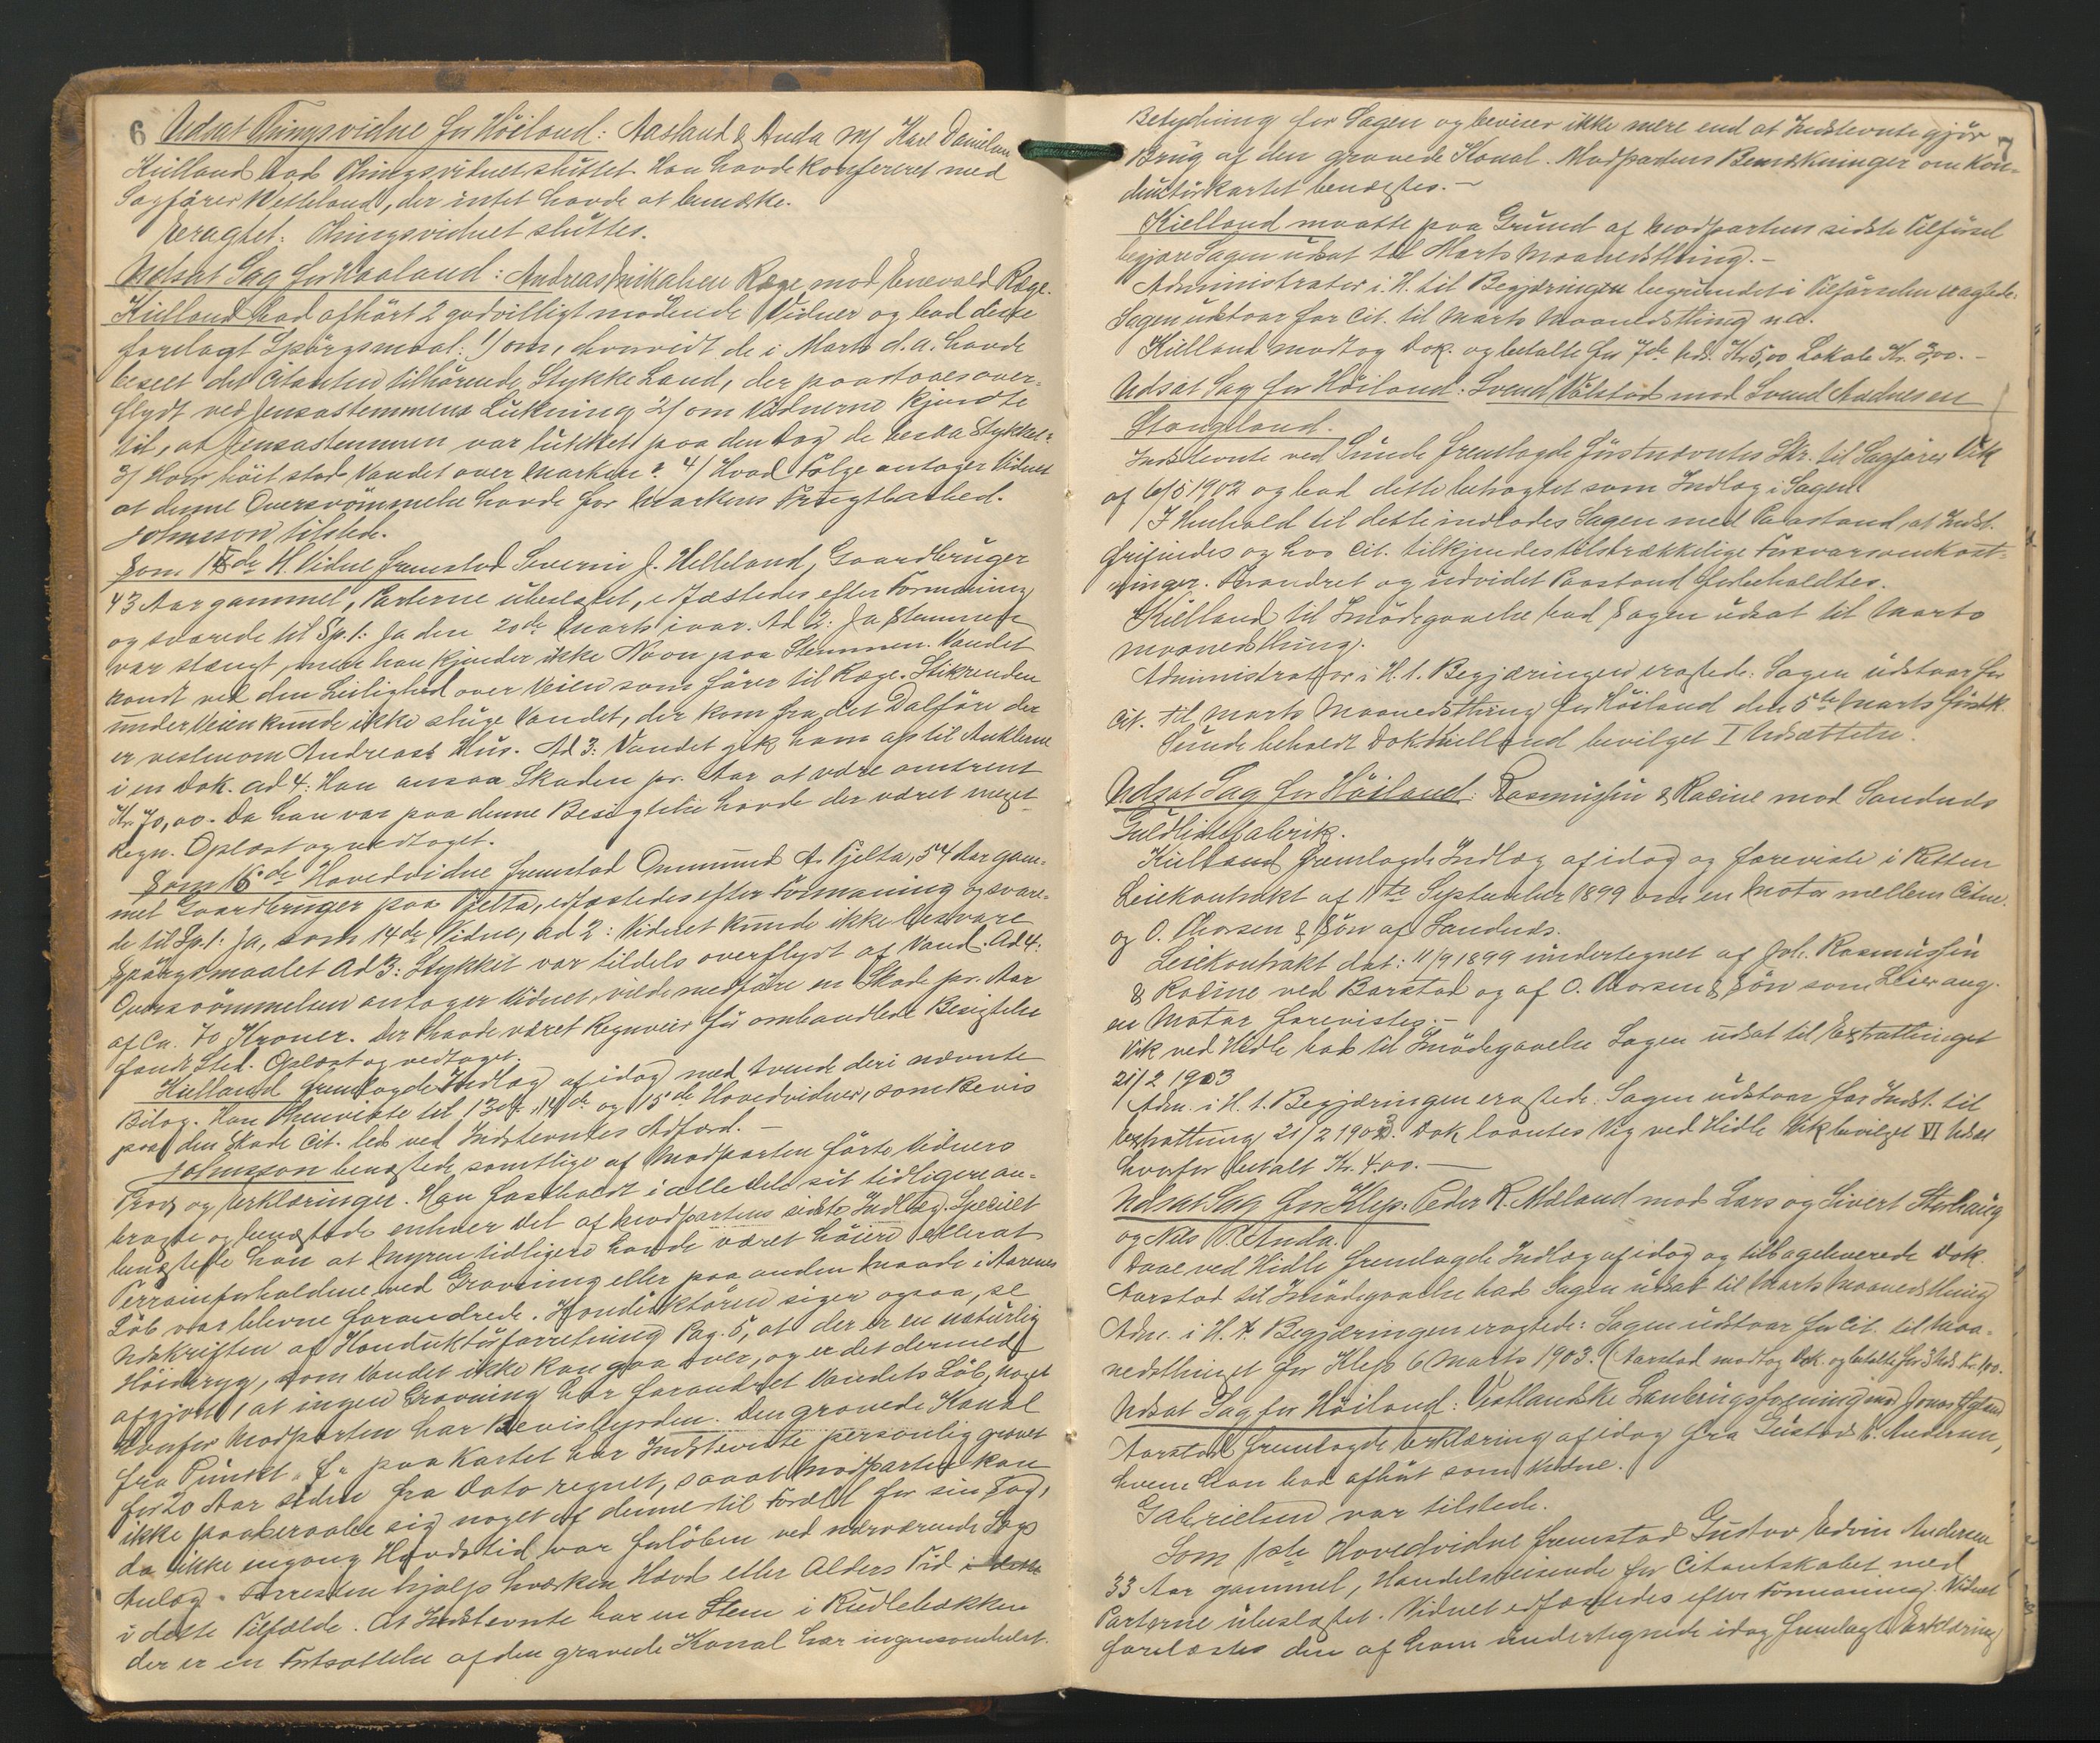 6 Udsat Thingsvidne for Höiland: Aasland & Anda m/ Karl Danielsen
Kielland bad Thingsvidnet sluttet. Han havde konfereret med
Sagförer Welleland, der intet havde at bemærke.
Eragtet: Thingsvidnet sluttes.
Udsat Sag for Haaland: Andreas Mikalsen Ræge mod Enevald Ræge.
Kielland had afhört 2 godvilligt mödende Vidner og bad disse
forelagt Spörgsmaal: 1) om, hvorvidt de i Marts d.a. havde
beseet det Citanten tilhörende Stykke Land, der paastaaes over-
flydt ved Jensastemmens Lukning 2/ om Vidnerne kjendte
til, at Jensastemmen var lukket paa den Dag de besaa Stykket?
3/ Hvor höit stod Vandet over Marken? 4/ Hvad Fölge antager Vidnet
at denne Oversvömmelse havde for Markens Frugtbarhed.
Johnsson tilstede.
Som 14de H. Vidne fremstod Severin J. Helleland, Gaardbruger
43 Aar gammel, Parterne übeslegtet, edfæstedes efter Formaning
og svarede til Sp. 1: Ja den 20de Marts ivaar. Ad 2: Ja Stemmen
var stængt, men han kjender ikke Navn paa Stemmen. Vandet
randt ved den Leilighed over Veien som förer til Ræge. Stikrenden
under Veien kunde ikke sluge Vandet, der kom fra det Dalföre der
er vestenom Andreas's Hus. Ad 3: Vandet gik ham op til Anklerne
i en Dok. ad 4: Han ansaa Skaden pr. Aar at være omtrent
Kr. 70,00. Da han var paa denne Besigtelse havde der været meget
Regn. Oplæst og vedtaget.
Som 15de Hovedvidne fremstod Ommund A. Tjelta, 54 Aar gam-
mel Gaardbruger paa Tjelta, edfæstedes efter Formaning og svare-
de til Sp. 1: Ja, som 14de Vidne, ad 2: Vidnet kunde ikke besvare
Spörgsmaalet Ad 3: Stykket var tildels overflydt af Vand. Ad 4:
Oversvömmelsen antager Vidnet, vilde medföre en Skade pr. Aar
af Ca. 70 Kroner. Der havde været Regnveir för omhandlede Besigtelse
fandt Sted. Oplæst og vedtaget.
Kielland fremlagde Indlæg af idag med tvende deri nævnte
Bilag. Han henviste til 13de, 14de og 15de Hovedvidner, som Bevis
paa den Skade Cit. led ved Indstevntes Adfærd. –
Johnsson benægtede samtlige af Modparten förte Vidners
Prov og Erklæringer. Han fastholdt i alle dele sit tidligere an-
bragte og benægtede enhver del af Modpartens sidste Indlæg. Specielt
benægtede han at Myren tidligere havde været höiere eller at
Terrainforholdene ved Gravning eller paa anden Maade i Aarenes
Löb var blevne forandrede. Konduktören siger ogsaa, se
Udskriften af Konduktörforretning Pag. 5, at der er en naturlig
Höideryg, som Vandet ikke kan gaa over, og er det dermed
afgjort, at ingen Gravning har forandret Vandets Löb, noget
hvorfor Modparten har Bevisbyrden. Den gravede Kanal
fra Punkt "f" paa Kartet har Indstevnte personlig gravet
for 20 Aar siden fra Dato regnet, saaat Modparten kan
ikke paaberaabe sig noget af denne til Fordel for sin Sag,
da ikke engang Hævdstid var forlöben ved nærværende Sags
Anlæg. Forresten hjælp hverken Hævd eller Alders Tid
i dette Tilfælde. At Indstevnte har en Stem i Rudlebækken
der er en Fortsættelse af den gravede Kanal har ingensomhelst
7
Betydning for Sagen og beviser ikke mere end at Indstevnte gjör
Brug af den gravede Kanal. Modpartens Bemærkninger om Kon-
duktörkartet benægtes. –
Kielland maatte paa Grund af Modpartens sidste Tilförsel
begjære Sagen udsat til Marts Maanedsthing. –
Administrator i H. til Begjæringen begrundet i Tilförselen eragtede:
Sagen udstaar for Cit. til Marts Maanedsthing n.a.
Kielland modtog Dok. og betalte for 7de Uds. Kr. 5,00 Lokale Kr. 3,00. –
Udsat Sag for Höiland: Svend Vølstad mod Svend Andersen
Stangeland.
Indstevnte ved Sunde fremlagde Justnævntes Skr. til Sagförer Vik
af 6/5 1902 og bad dette betragtet som Indlæg i Sagen.
I Henhold til dette indlodes Sagen med Paastand, at Indst.
frifindes og hos Cit. tilkjendes tilstrækkelige Forsvarsomkost-
ninger. Forandret og udvidet Paastand forbeholdtes.
Kielland til Imödegaaelse bad Sagen udsat til Marts
Maanedsthing.
Administrator i H. t. Begjæringen eragtede: Sagen udstaar for
Cit. til Marts Maanedsthing for Höiland den 5te Marts förstk.
Sunde beholdt Dok. Kielland bevilget I Udsættelse.
Udsat Sag for Höiland: Rasmussen & Racine mod Sandnds
Guldlistefabrik.
Kielland fremlagde Indlæg af idag og foreviste i Retten
Leiekontrakt af 11te September 1899 om en Motor mellem Citne.
og O. Thorsen & Sön af Sandnds.
Leiekontrakt dat: 11/9 1899 undertegnet af Joh. Rasmussen
& Racine ved Barstad og af O. Thorsen & Sön som Leier ang.
en Motor forevistes. –
Vik ved Hidle bad til Imödegaaelse Sagen udsat til Extrathinget
21/2 1903
Adm. i H. t. Begjæringen eragtede: Sagen udstaar for Indst. til
Extratting 21/2 1903. Dok. laantes Vig ved Hidle Vik bevilget VI Udsæt
hvorfor betalt Kr. 4.00. –
Udsat Sag for Klep: Peder R. Mæland mod Lars og Sivert Storhaug
og Nils Anda.
Daae ved Hidle fremlagde Indlæg af idag og tilbageleverede Dok.
Aarstad til Imödegaaelse bad Sagen udsat til Marts Maanedsthing
Adm. i H. t. Begjæringen eragtede: Sagen udstaar for Cit. til Maa-
nedsthinget for Klep 6 Marts 1903. (Aarstad modtog Dok. og betalte for 3 Uds. Kr.
Udsat Sag for Höiland: Vestlandske Lanbrugsforening mod Jonas
Aarstad fremlagde Erklæring af idag fra Gustav E. Andersen,
hvem han bad afhört som Vidne.
Gabrielsen var tilstede.
Som 1ste Hovedvidne fremstod Gustav Edvin Andersen
33 Aar gammel, Handelsreisende for Citantskabet med
Parterne übeslægtet. Vidnet edfæstedes efter Formaning. Vidnet
forelæstes den af ham undertegnede idag fremlagte Erklæring